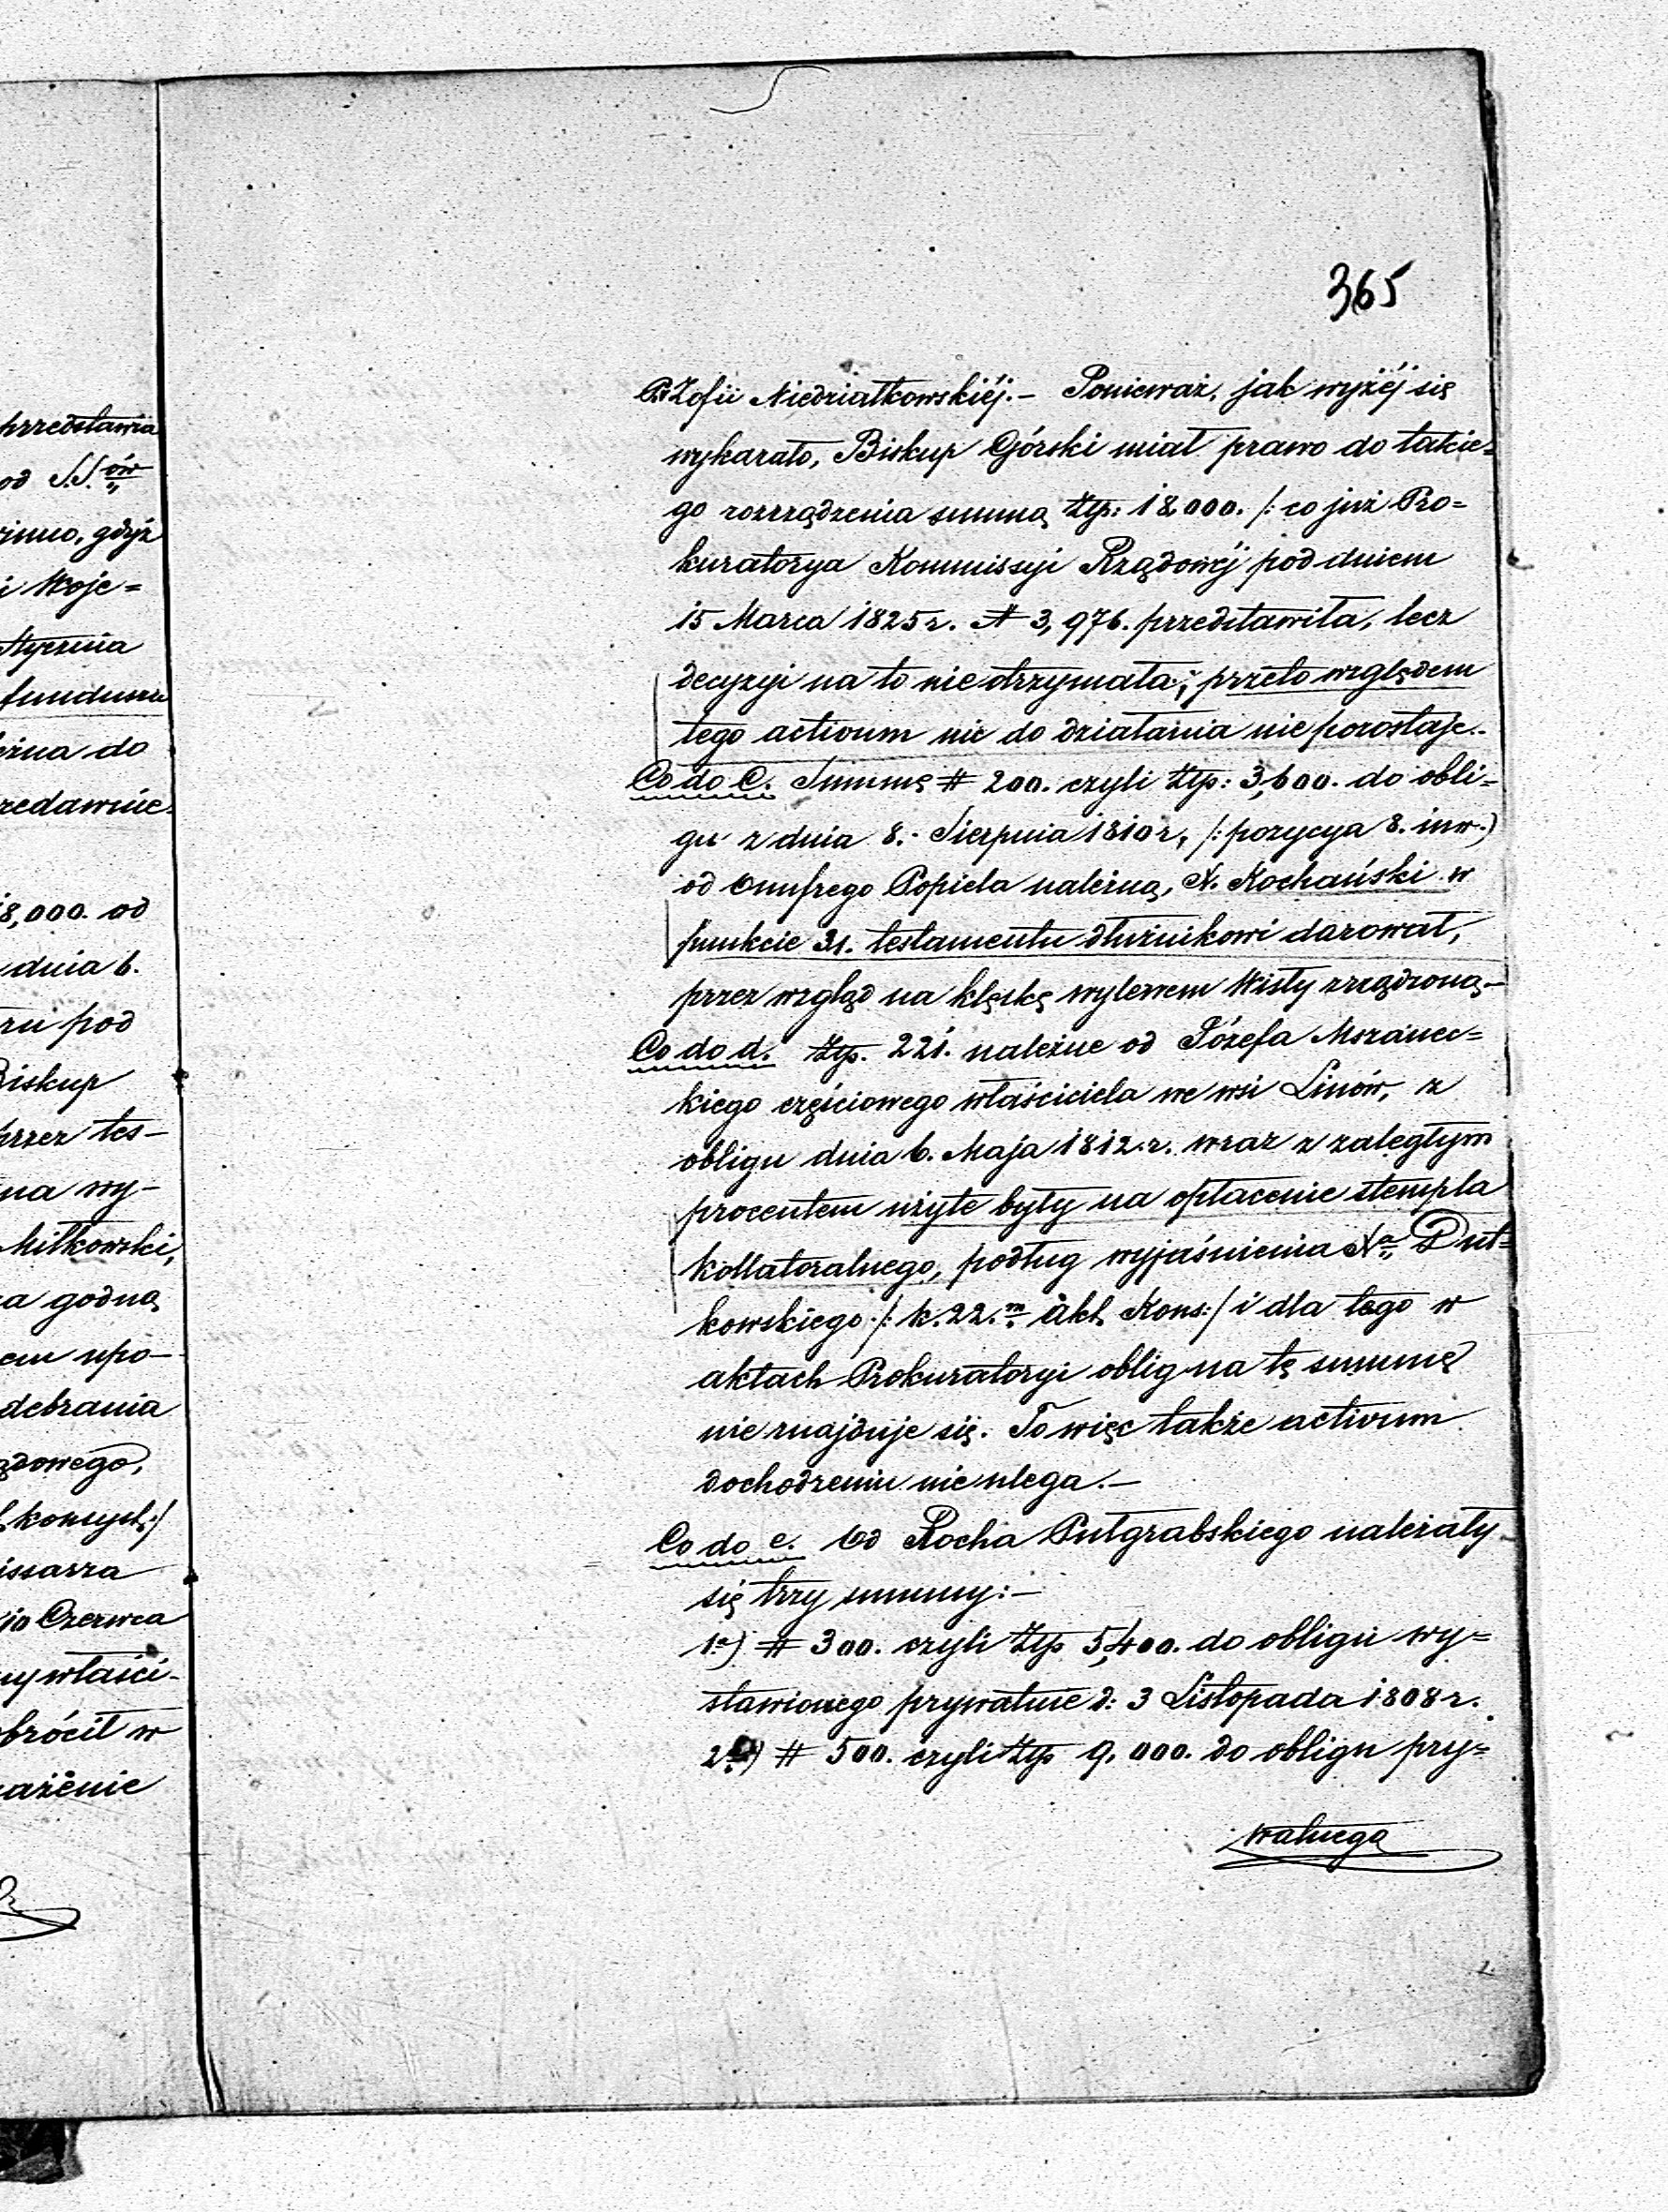 przedstawia
od S.S.ów
gdyż
i Woje=
Stycznia
funduszu
do
18,000. od
dnia 6.
pod
Biskup
przez tes-
na wy-
Miłkowski,
a godną
upo-
odebrania
issarza
10 Czerwca
właści-
obrócił w
365
Zofii Niedziałkowskiéj.- Ponieważ, jak wyżéj się
wykazało, Biskup Górski miał prawo do takie=
go rozrządzenia summą Złp: 18,000. /: co już Pro=
kuratorya Kommissyi Rządowéj pod dniem
15 Marca 1825 r. N 3,976. przedstawiła, lecz
decyzyi na to nie otrzymała; przeto względem
tego activum nic do działania nie pozostaje.
Co do C. Summę # 200. czyli Złp: 3,600. do obli=
gu z dnia 8. Sierpnia 1810 r, /: pozycya 8. inw.)
od Onufrego Popiela należną, X. Kochański w
punkcie 31. testamentu dłużnikowi darował,
przez wzgląd na klęskę wylewem Wisły zrządzoną.-
Co do d. Złp. 221. należne od Józefa Mszanec=
kiego częściowego właściciela we wsi Linów, z
obligu dnia 6. Maja 1812. r. wraz z zaległym
procentem użyte były na opłacenie stempla
kollateralnego, podług wyjaśnienia Xa Dut=
kowskiego /: k. 22.m akt Kons:/ i dla tego w
aktach Prokuratoryi oblig na tę summę
nie znajduje się. To więc także activum
dochodzeniu nie ulega.-
Co do e. Od Rocha Putgrabskiego należały
się trzy summy:-
1.) # 300. czyli Złp 5,400. do obligu wy=
stawionego prywatnie d: 3 Listopada 1808 r.
2) # 500. czyli Złp 9,000. do obligu pry=
watnego